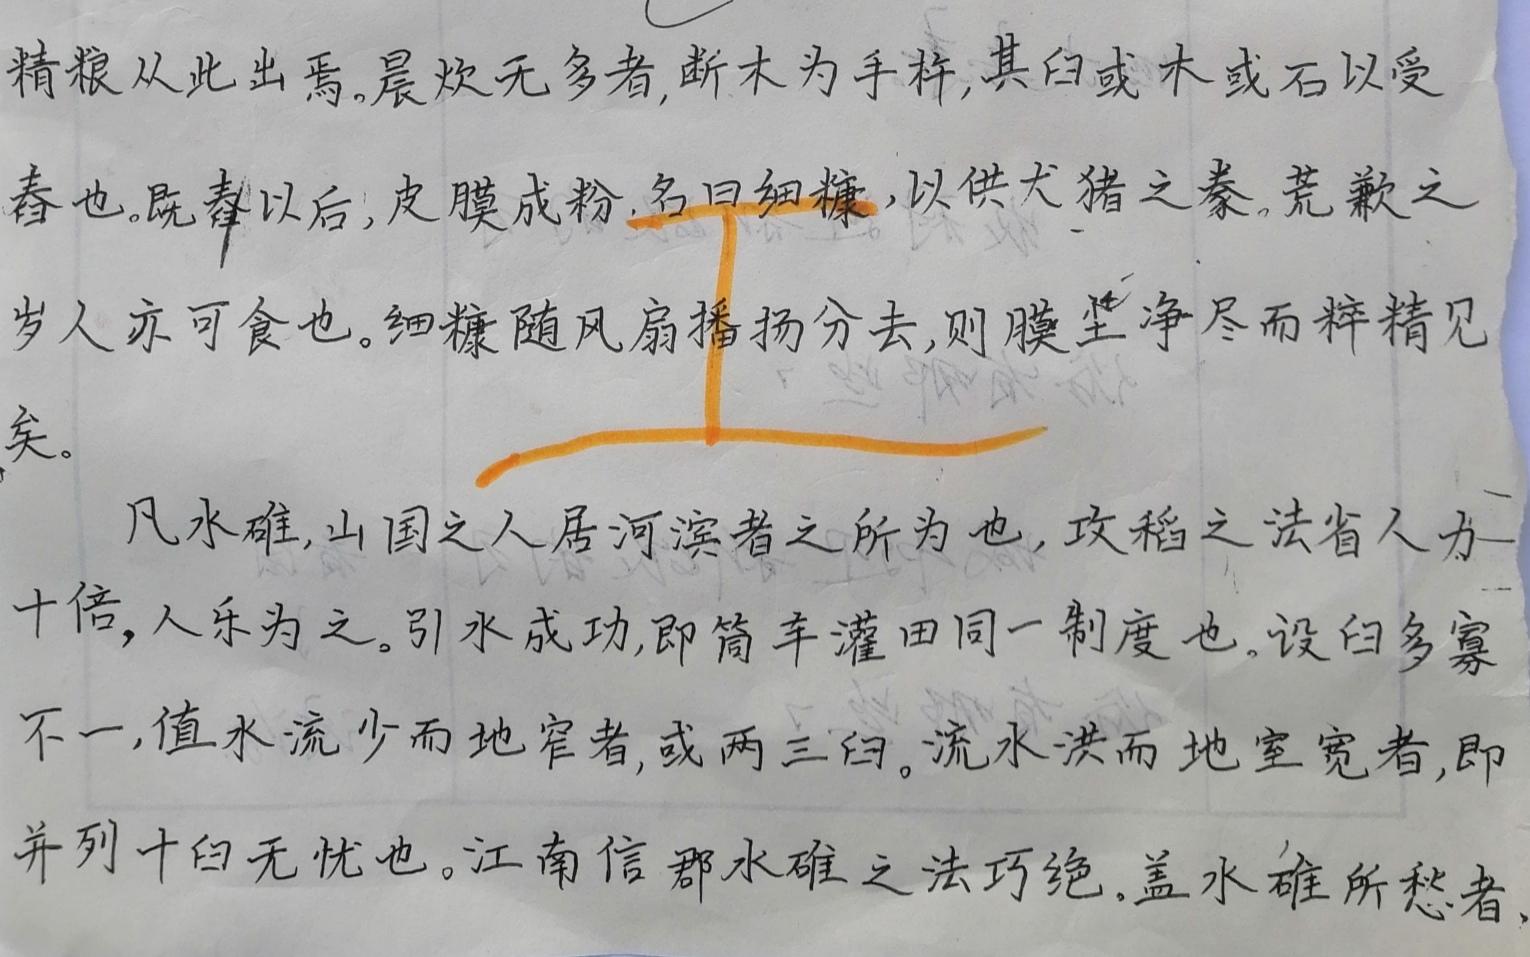 精粮从此出焉。晨炊无多者,断木为手杵,其臼或木或石以受
舂也。既舂以后,皮膜成粉,名曰细糠,以供犬猪之豢。荒歉之
岁人亦可食也。细糠随风扇播扬分去,则膜尘净尽而粹精见
矣。
凡水碓,山国之人居河滨者之所为也,攻稻之法省人力
十倍,人乐为之。引水成功,即筒车灌田同一制度也。设臼多寡
不一,值水流少而地窄者,或两三臼。流水洪而地室宽者,即
并列十臼无忧也。江南信郡水碓之法巧绝。盖水碓所愁者,